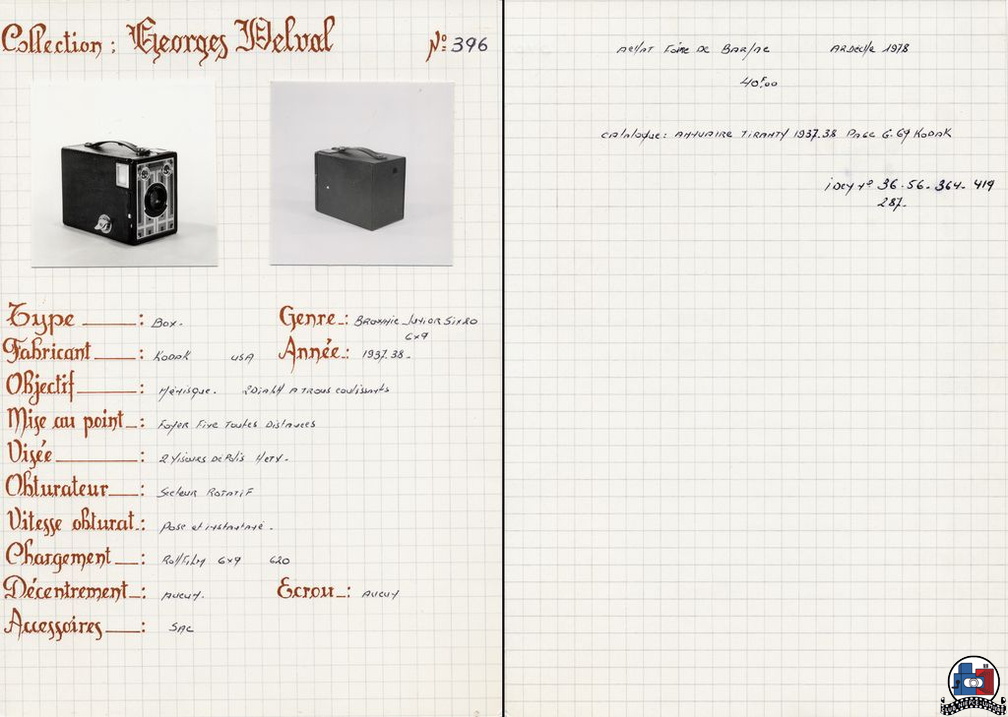 Collection : Georges Delval Nº 396
Type : Box. Genre : Brownie Junior Six20
6x9
Fabricant : Kodak USA Année : 1937.38.
Objectif : Ménisque. 2 Diaph A Trous coulissants
Mise au point : Foyer Fixe Toutes Distances
Visée : 2 Viseurs Dépolis
Obturateur : Secteur Rotatif
Vitesse obturat. : Pose et instantané.
Chargement : Rollfilm 6x9 620
Décentrement : Aucun. Ecrou : Aucun
Accessoires : SAC
Achat Foire de Barjac Ardèche 1978
40F,00
Catalogue : Annuaire Tiranty 1937.38 Page G.69 Kodak
Nº 36-56-364-419
287-